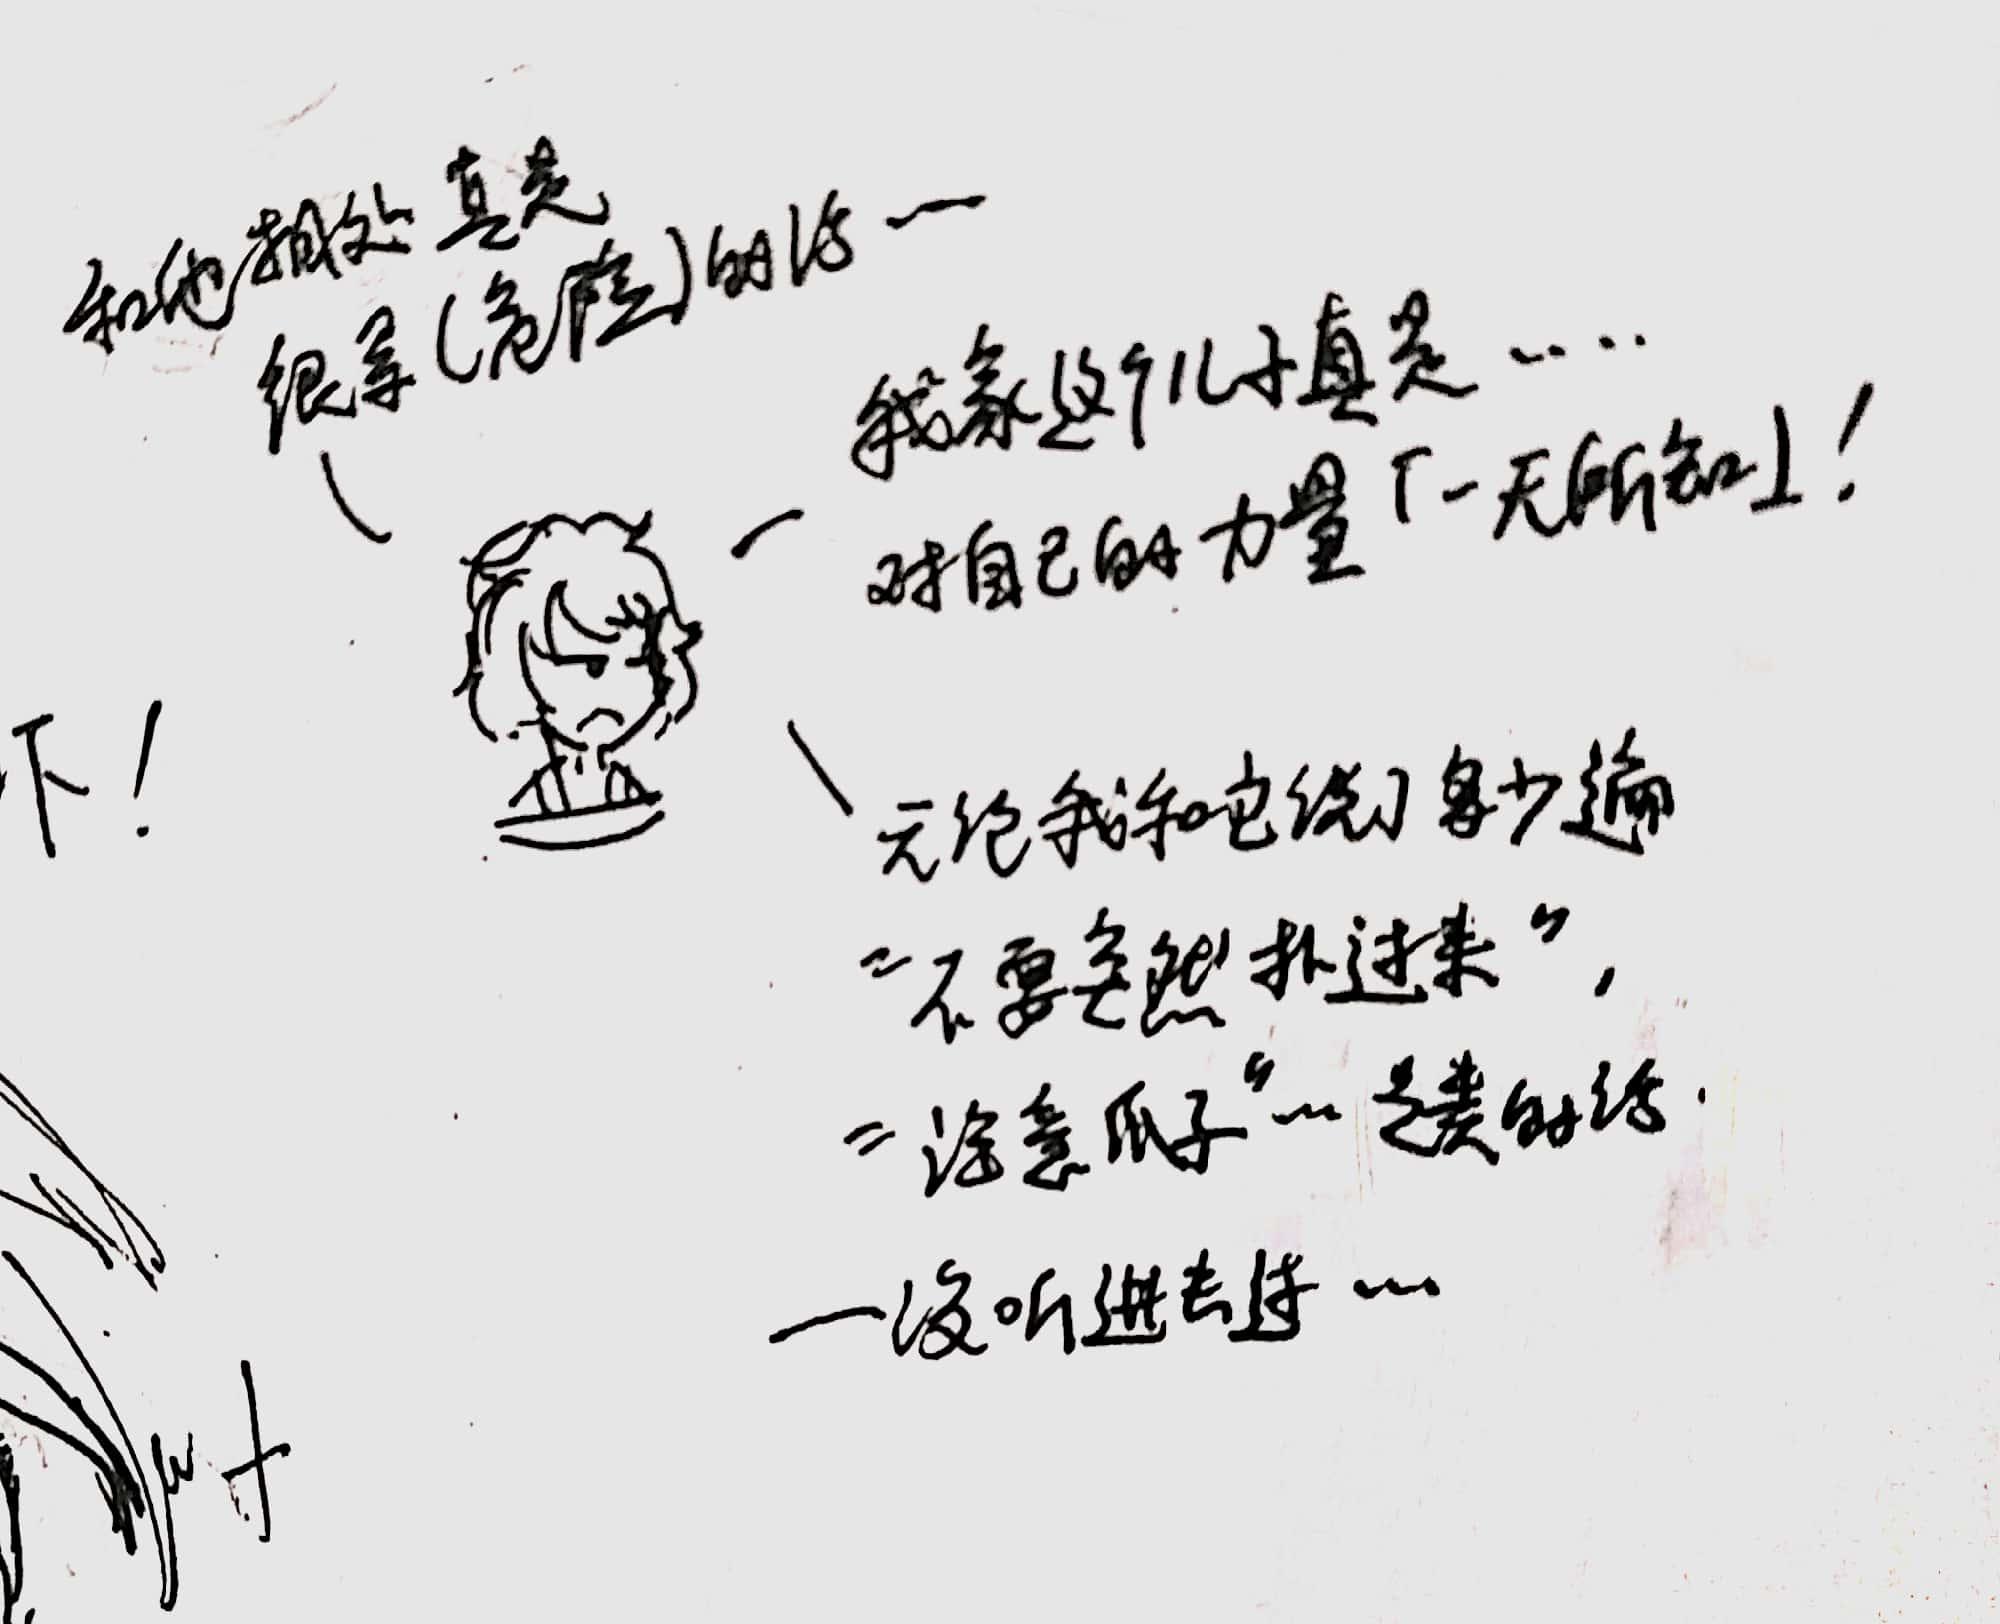 和他相处真是
很累(危险)的说一
我家这个儿子真是……
对自己的力量「一无所知」!
无论我和它说了多少遍
“不要突然扑过来”,
“注意爪子”…之类的话.
一没听进去过…
下!